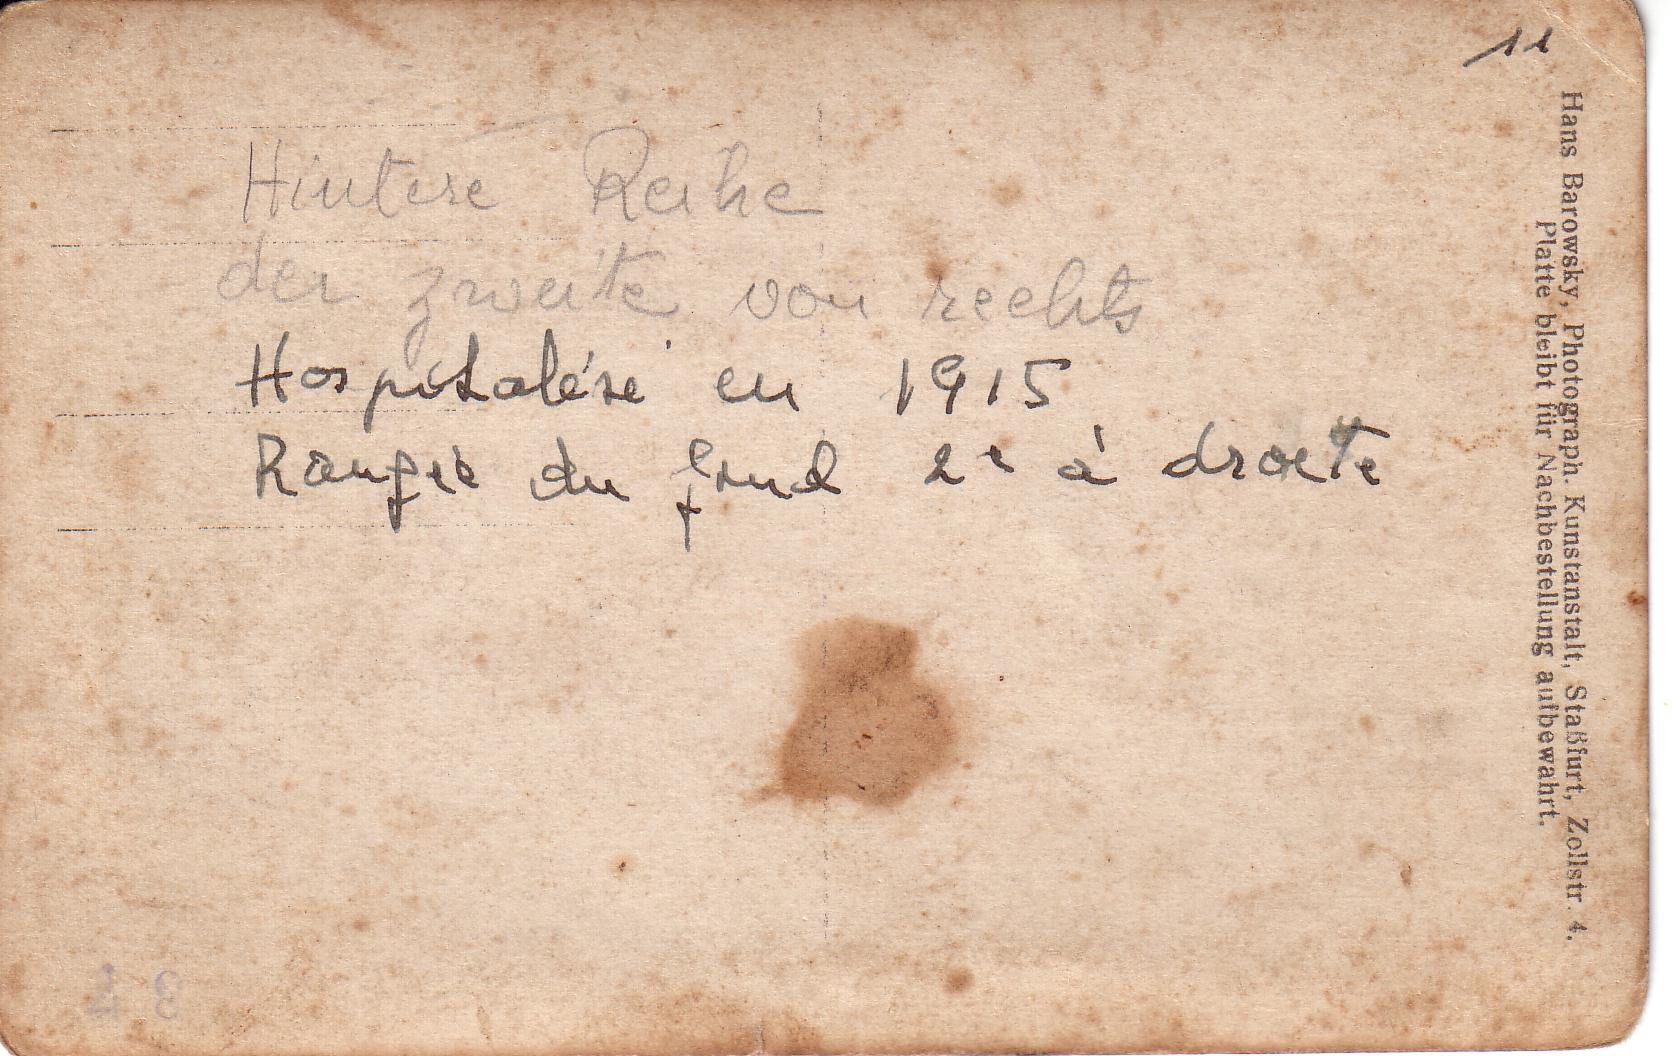 11
Hintere Reihe
der zweite von rechts
Hospitalisé en 1915
Rangée du fond 2e à droite
Hans Barowsky, Photograph. Kunstanstalt, Staßfurt, Zollstr. 4.
Platte bleibt für Nachbestellung aufbewahrt.